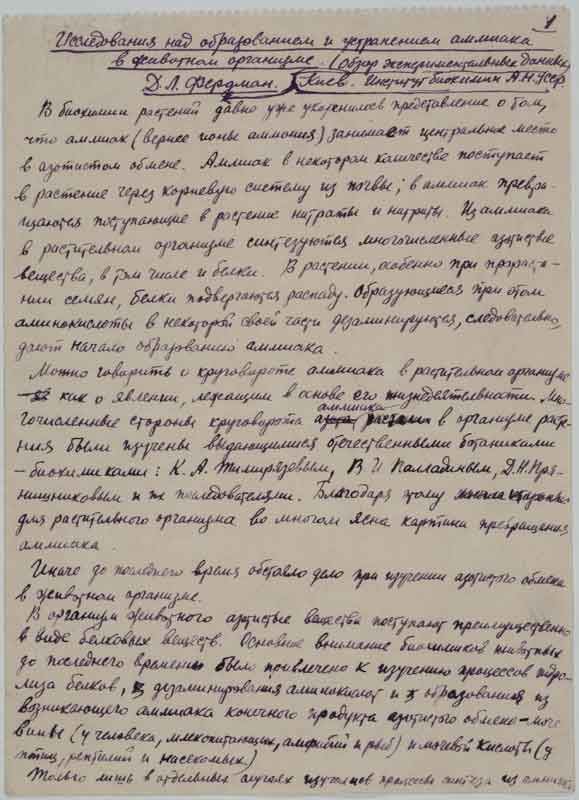 1
Исследования над образованием и устранением аммиака
в животном организме. (Обзор экспериментальных данных)
Д. Л. Фердман. Киев. Институт биохимии А.Н. УССР.
В биохимии растений давно уже укоренилось представление о том,
что аммиак (вернее ионы аммония) занимает центральное место
в азотистом обмене. Аммиак в некотором количестве поступает
в растение через корневую систему из почвы; в аммиак превра-
щаются поступающие в растение нитраты и нитриты. Из аммиака
в растительном организме синтезуются многочисленные азотистые
вещества, в том числе и белки. В растении, особенно при прораста-
нии семян, белки подвергаются распаду. Образующиеся при этом
аминокислоты в некоторой своей части дезаминируются, следовательно,
дают начало образованию аммиака.
Можно говорить о круговороте аммиака в растительном организме
как о явлении, лежащим в основе его жизнедеятельности. Мно-
гочисленные стороны круговорота аммиака в организме расте-
ния были изучены выдающимися отечественными ботаниками
- биохимиками: К. А. Тимирязевым, В И Палладиным, Д. Н. Пря-
нишниковым и их последователями. Благодаря этому
для растительного организма во многом ясна картина превращения
аммиака.
Иначе до последнего время обстояло дело при изучении азотистого обмена
в животном организме.
В организм животного азотистые вещества поступают преимущественно
в виде белковых веществ. Основное внимание биохимиков животных
до последнего времени было привлечено к изучению процессов гидро-
лиза белков, дезаминирования аминокислот и образования из
возникающего аммиака конечного продукта азотистого обмена - моче-
вины (у человека, млекопитающих, амфибий и рыб) и мочевой кислоты (у
птиц, рептилий и насекомых)
Только лишь в отдельных случаях изучались процессы синтеза из аммиака